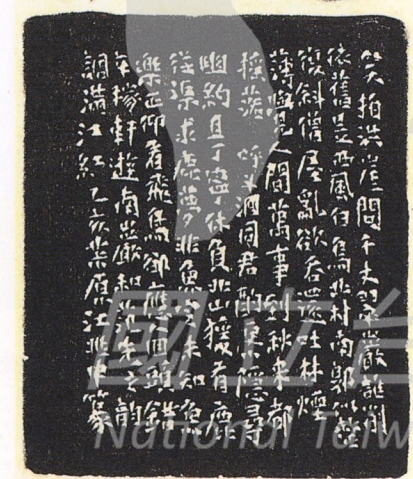 笑拍洪崖問千丈翠巖誰削
依舊是西風白鳥北村南郭似整
復斜僧屋亂欲吞還吐林煙
薄覺人間萬事到秋來都
搖落 呼斗酒同君酌更小隱尋
幽約且丁寧休負北山猿鶴有鹿
從渠求鹿夢非魚定未知魚
樂正仰看飛鳥卻應人回頭錯
辛稼軒遊南巖和范先之韻
調滿江紅 乙亥 江兆申篆
國立台
National Taiw